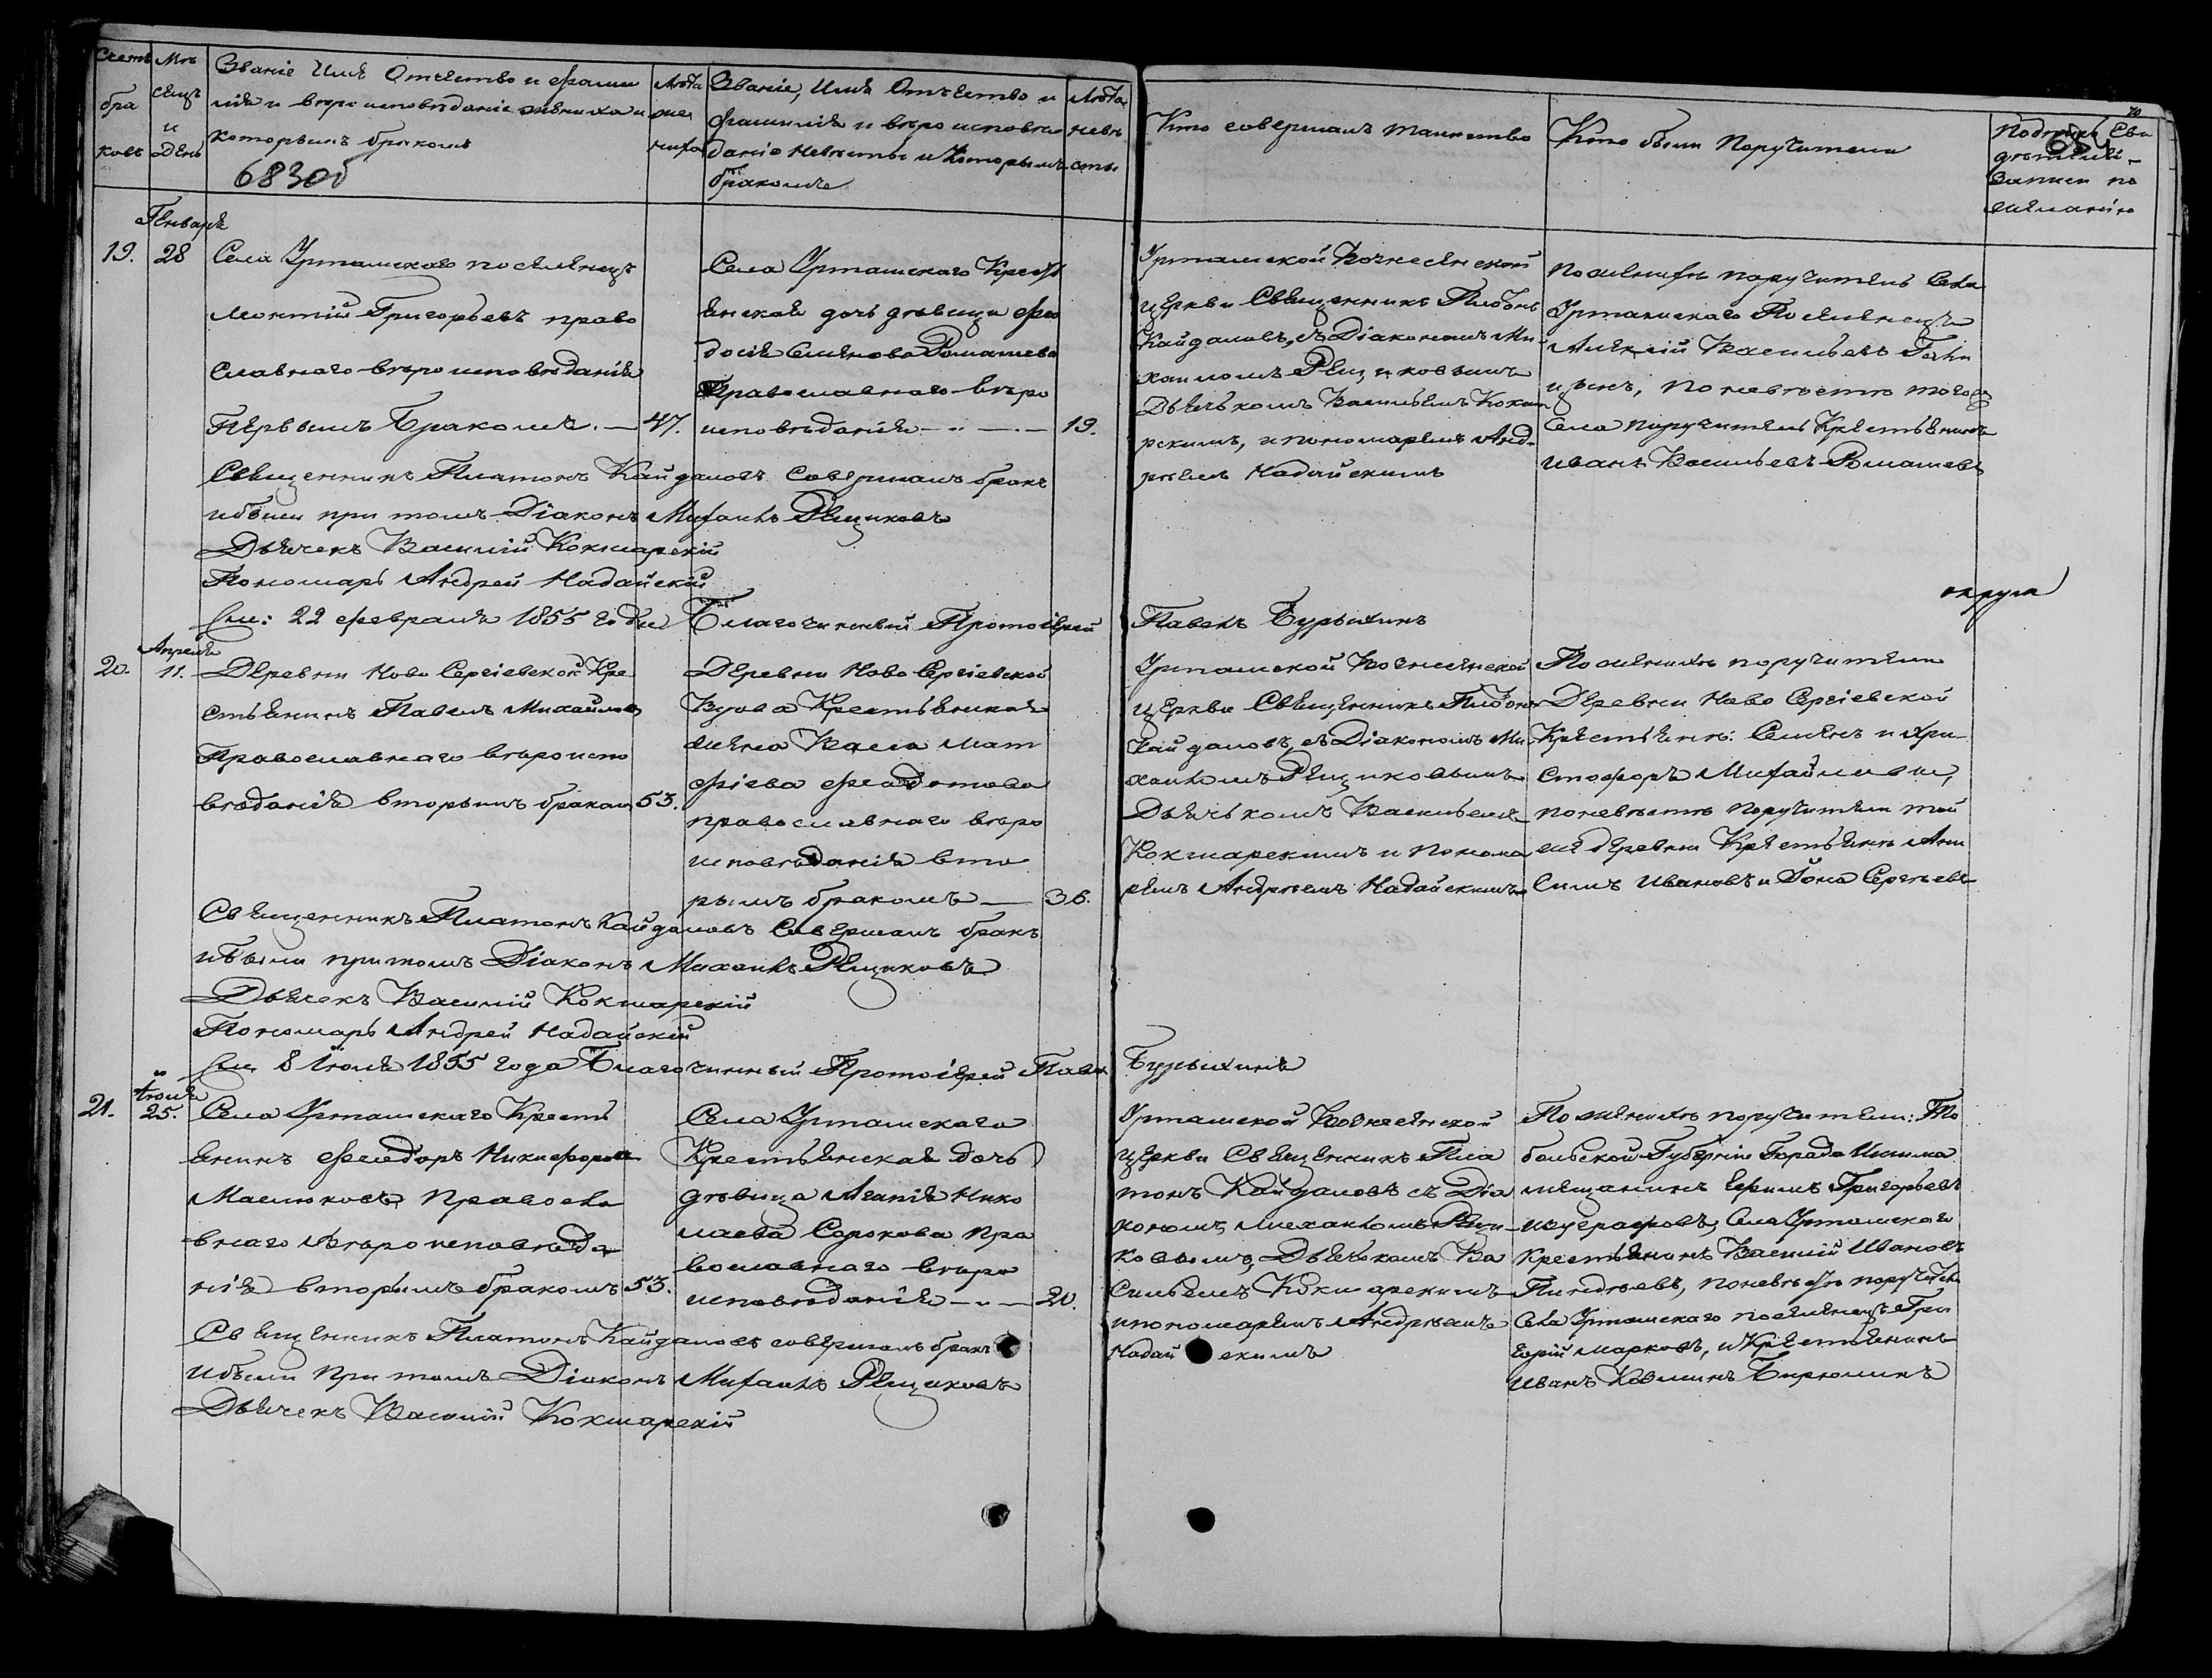 Счетъ
бра
ковъ
Мѣ
сяцъ
и
День
Званіе Имя Отчество и фами
лія и вѣроисповѣданіе жениха и
которымъ бракомъ
68300
Лѣта
же
ниха
Званіе, Имя Отчество и
фамилія и вѣроисповѣ
даніе невѣсты и Которымъ
бракомъ
Лѣта
невѣ
сты
Кто совершалъ таинство
Кто были Поручители
70
Подпись Сви
дѣтелей
Записи по
желанію
Генваря
19.
28
Села Уртамскаго поселенецъ
Григорьевъ право
славнаго вѣроисповѣданія
Первымъ Бракомъ. —
47.
Села Уртамскаго Кресть
янская дочь дѣвица Фео
досія Семенова Ромашева
Православнаго вѣро
исповѣданія — " — . —
19.
Уртамской Вознесенской
церкви Священникъ Платонъ
Кайдаловъ, съ Діакономъ Ми
хаиломъ Рещиковымъ
Дьячькомъ Васильемъ Кокша
рскимъ, и пономаремъ Анд-
рѣемъ Надайскимъ
По женихѣ поручитель Села
Уртамскаго Поселенецъ
Алексѣй Васильевъ
, По невѣстѣ тогожъ
Села поручитель Крестьянинъ
Иванъ Васильевъ Ромашевъ
Священникъ Платонъ Кайдаловъ Совершалъ бракъ
и были при томъ Діаконъ Михаилъ Рещиковъ
Дьячекъ Василій Кокшарскій
Пономарь Андрей Надайскій
округа
22 февраля 1855 года Благочинный Протоіерей Павелъ Бурыхинъ
Апреля
20.
11.
Деревни Ново Сергіевской Кре
стьянинъ Павелъ Михайловъ
Православнаго вѣроиспо
вѣданія вторымъ бракомъ
53.
Деревни Ново Сергіевской
Вдова Крестьянская
жена Васса Мат
фіева Федотова
православнаго вѣро
исповѣданія вто
рымъ бракомъ —
36.
Уртамской Вознесенской
Церкви Священникъ Платонъ
Кайдаловъ, съ Діакономъ Ми
хаиломъ Рещиковымъ
Дьячькомъ Васильемъ
Кокшарскимъ и Понома
ремъ Андрѣемъ Надайскимъ
По женихѣ поручители
Деревни Ново Сергіевской
Крестьяня: Семенъ и Хри-
стофоръ Михайловы,
по невѣстѣ поручители той
же деревни Крестьяня Ани
симъ Ивановъ и Іона Сергѣевъ
Священникъ Платонъ Кайдаловъ Совершалъ бракъ
и были при томъ Діаконъ Михаилъ Рещиковъ
Дьячекъ Василій Кокшарскій
Пономарь Андрей Надайскій
8 Іюля 1855 года Благочинный Протоіерей Павелъ Бурыхинъ
Іюля
21.
25.
Села Уртамскаго Кресть
янинъ Феодоръ Никифоровъ
Маслюковъ Правосла
внаго Вѣроисповѣда
нія вторымъ бракомъ
53.
Села Уртамскаго
Крестьянская дочь
дѣвица Аганія Нико
лаева Сорокова Пра
вославнаго вѣро
исповѣданія — " —
20.
Уртамской Вознесенской
церкви Священникъ Пла
тонъ Кайдаловъ съ Діа
кономъ Михаиломъ Рещи
ковымъ, Дьячькомъ Ва
сильемъ Кокшарскимъ
и пономаремъ Андрѣемъ
Надайскимъ
По женихѣ поручители: То
больской Губерніи Города Ишима
мѣщанинъ Ефимъ Григорьевъ
, Села Уртамскаго
Крестьянинъ Василій Ивановъ
, по невѣстѣ поручители
Села Уртамскаго поселенецъ Гри
горій Марковъ, и Крестьянинъ
Иванъ Козминъ Бирюлинъ
Священникъ Платонъ Кайдаловъ совершалъ бракъ
и были при томъ Діаконъ Михаилъ Рещиковъ
Дьячекъ Василій Кокшарскій